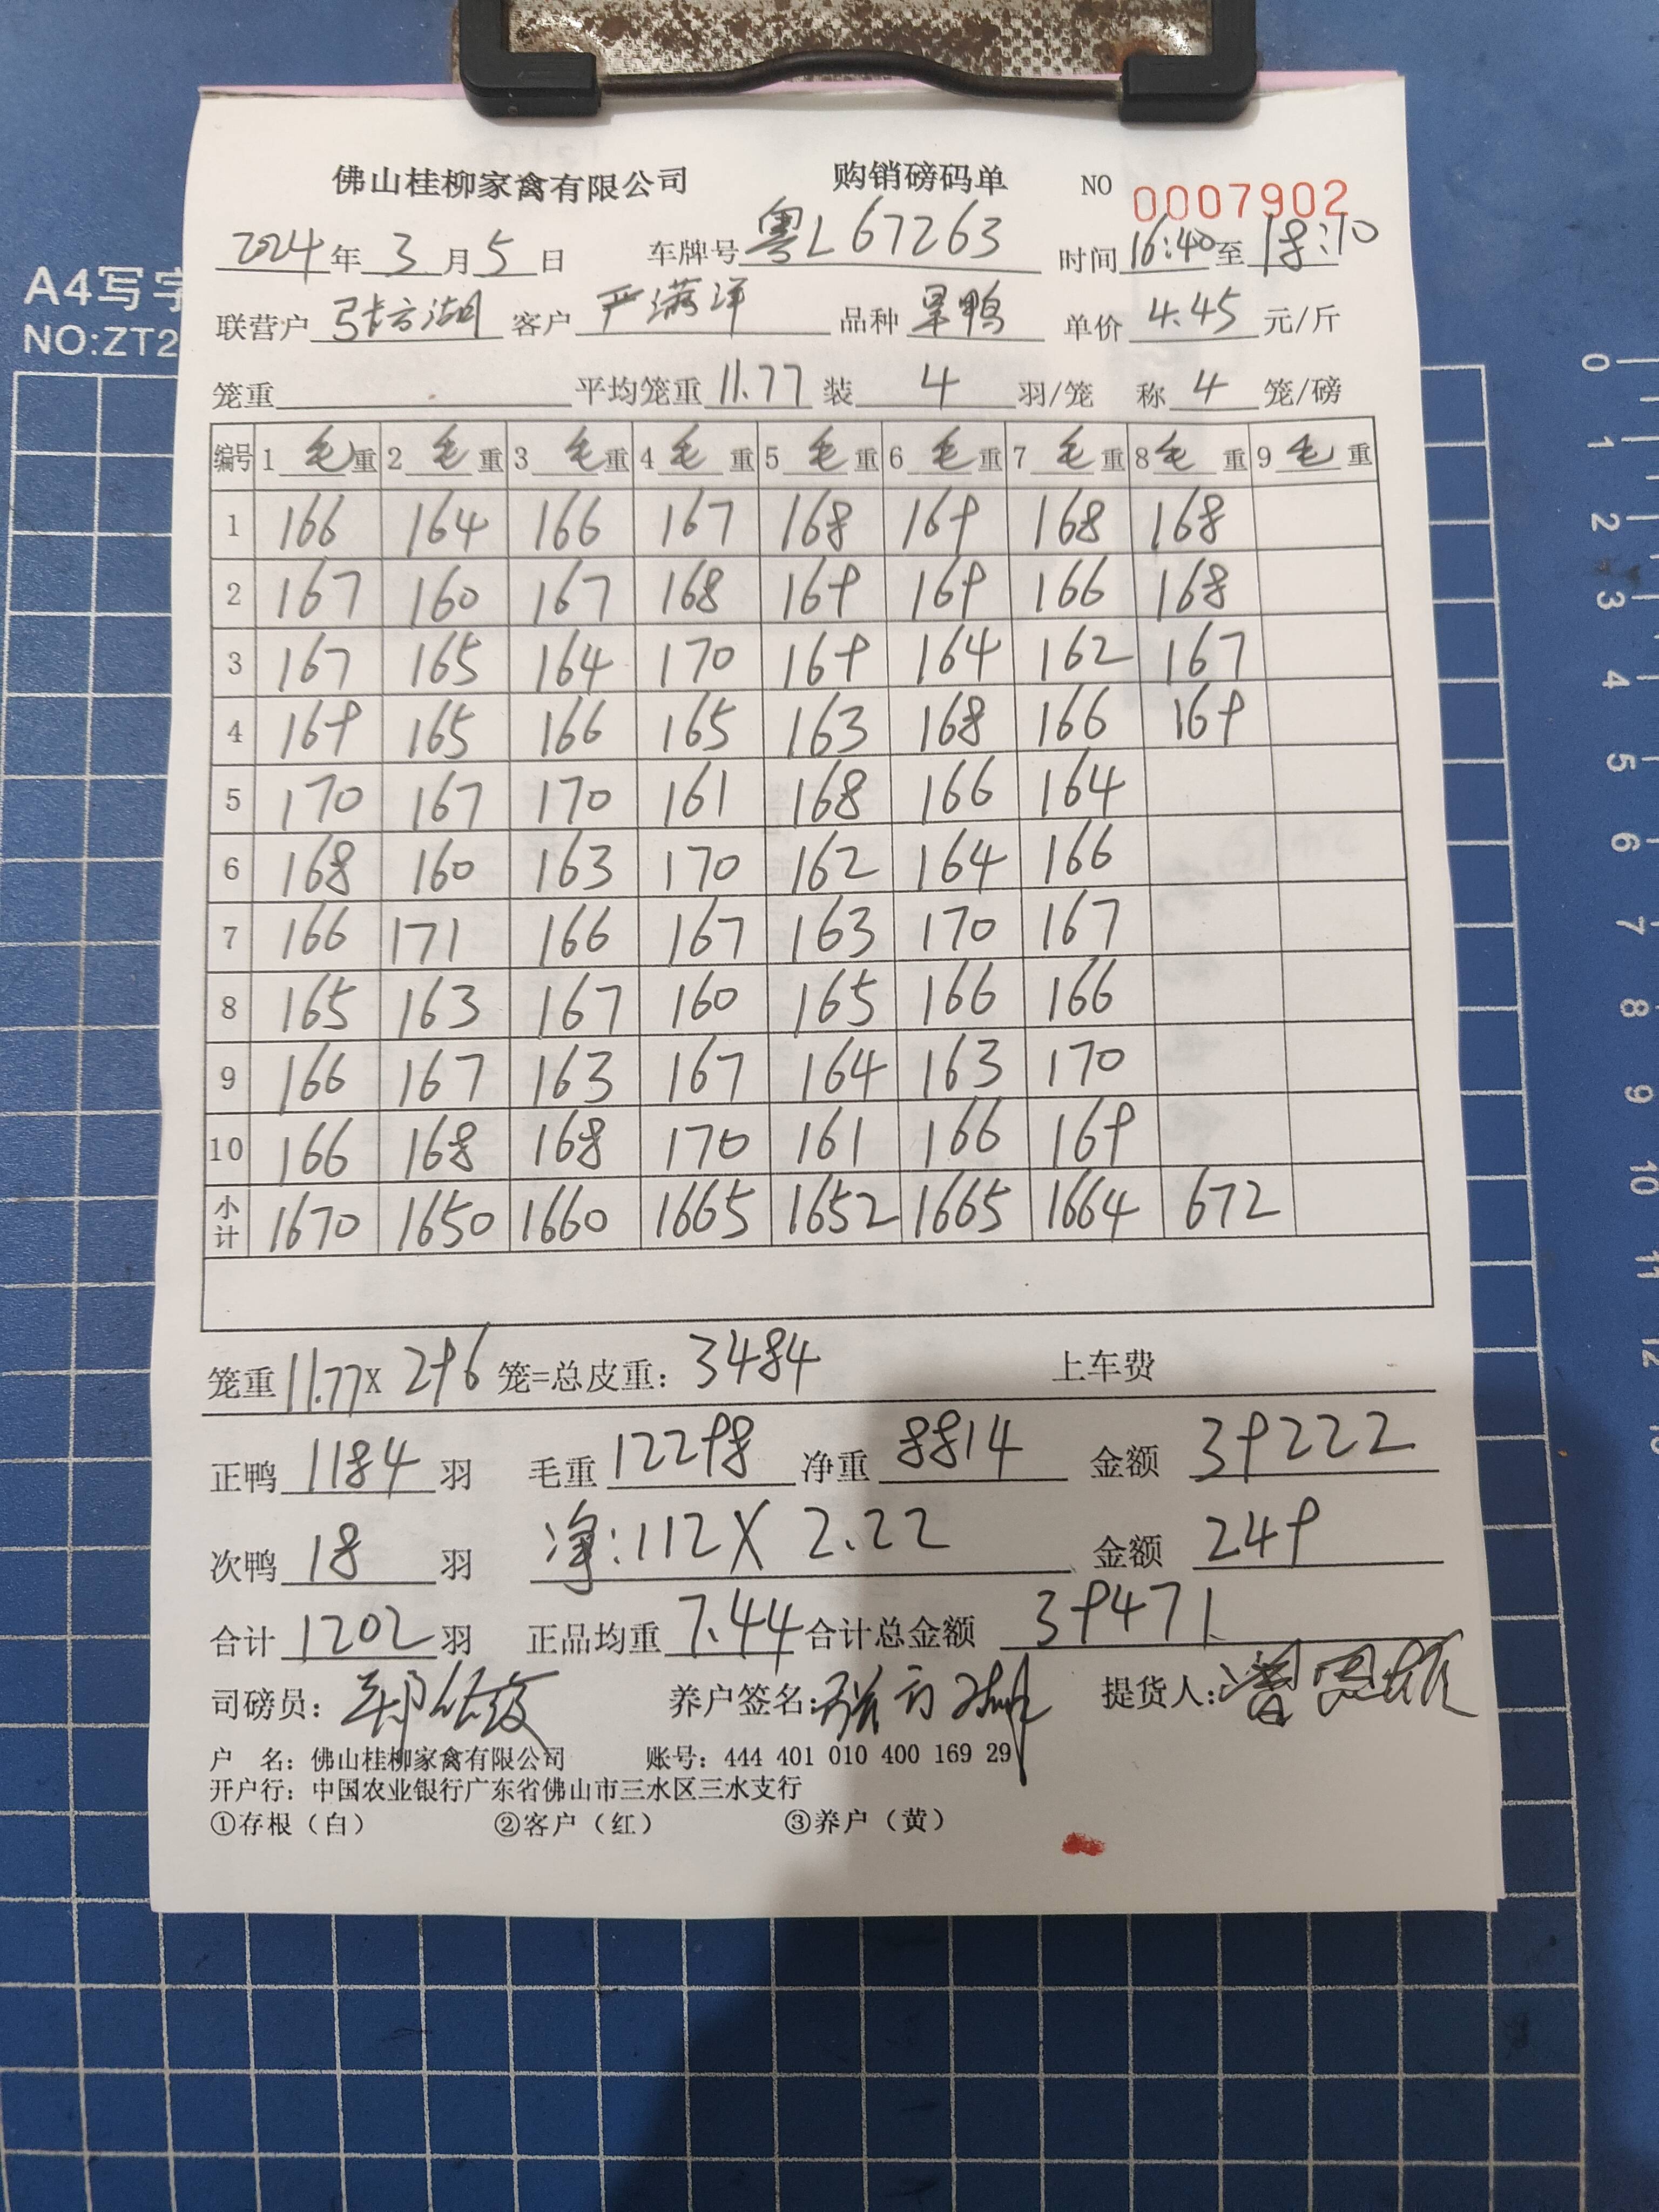 佛山桂柳家禽有限公司 购销磅码单 NO 0007902
2024年3月5日 车牌号粤L67263 时间16:40至18:10
联营户 张方湖 客户 严满洋 品种 旱鸭 单价 4.45 元/斤
笼重 平均笼重 11.77 装 4 羽/笼 称 4 笼/磅
编号 1 毛重 2 毛重 3 毛重 4 毛重 5 毛重 6 毛重 7 毛重 8 毛重 9 毛重
1 166 164 166 167 168 169 168 168
2 167 160 167 168 169 169 166 168
3 167 165 164 170 169 164 162 167
4 169 165 166 165 163 168 166 169
5 170 167 170 161 168 166 164
6 168 160 163 170 162 164 166
7 166 171 166 167 163 170 167
8 165 163 167 160 165 166 166
9 166 167 163 167 164 163 170
10 166 168 168 170 161 166 169
小计 1670 1650 1660 1665 1652 1665 1664 672
笼重11.77X 296 笼=总皮重: 3484 上车费
正鸭 1184 羽 毛重 12298 净重 8814 金额 39222
次鸭 18 羽 净:112X 2.22 金额 249
合计 1202 羽 正品均重 7.44 合计总金额 39471
司磅员: 养户签名: 张方湖 提货人:
户 名: 佛山桂柳家禽有限公司 账号: 444 401 010 400 169 29
开户行: 中国农业银行广东省佛山市三水区三水支行
①存根（白） ②客户（红） ③养户（黄）
A4写字
NO:ZT2
0
1
2
3
4
5
6
7
8
9
10
11
12